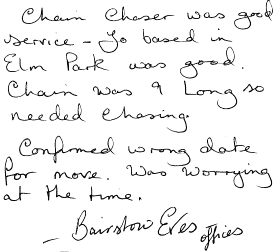 Chain Chaser was good
service - Jo based in
Elm Park was good.
Chain was 9 Long so
needed chasing.
Confirmed wrong date
for move. Was worrying
at the time.
- Bairstow Eves offices